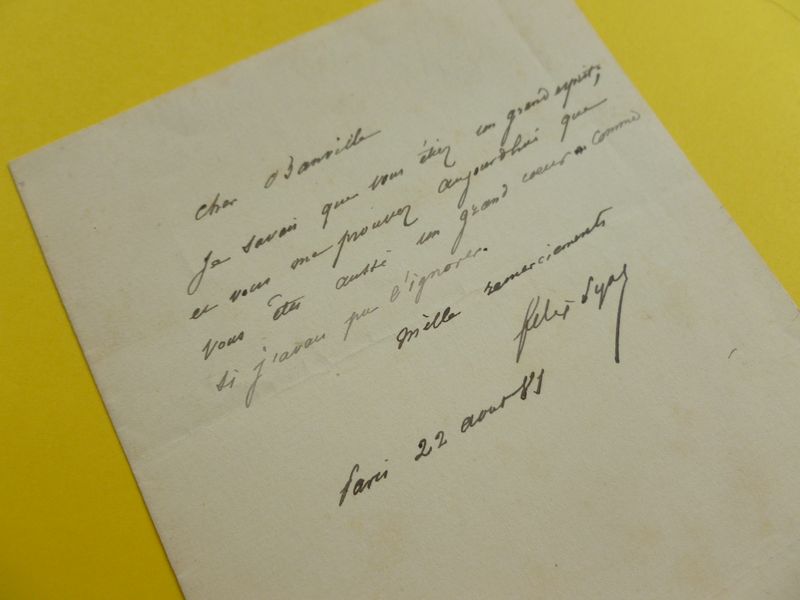 cher Banville
Je savais que vous étiez un grand esprit;
et vous me prouvez aujourdhui que
vous êtes aussi un grand cœur comme
si j'avais pu l'ignorer.
Mille remerciements
felix Pyat
Paris 22 aout 81